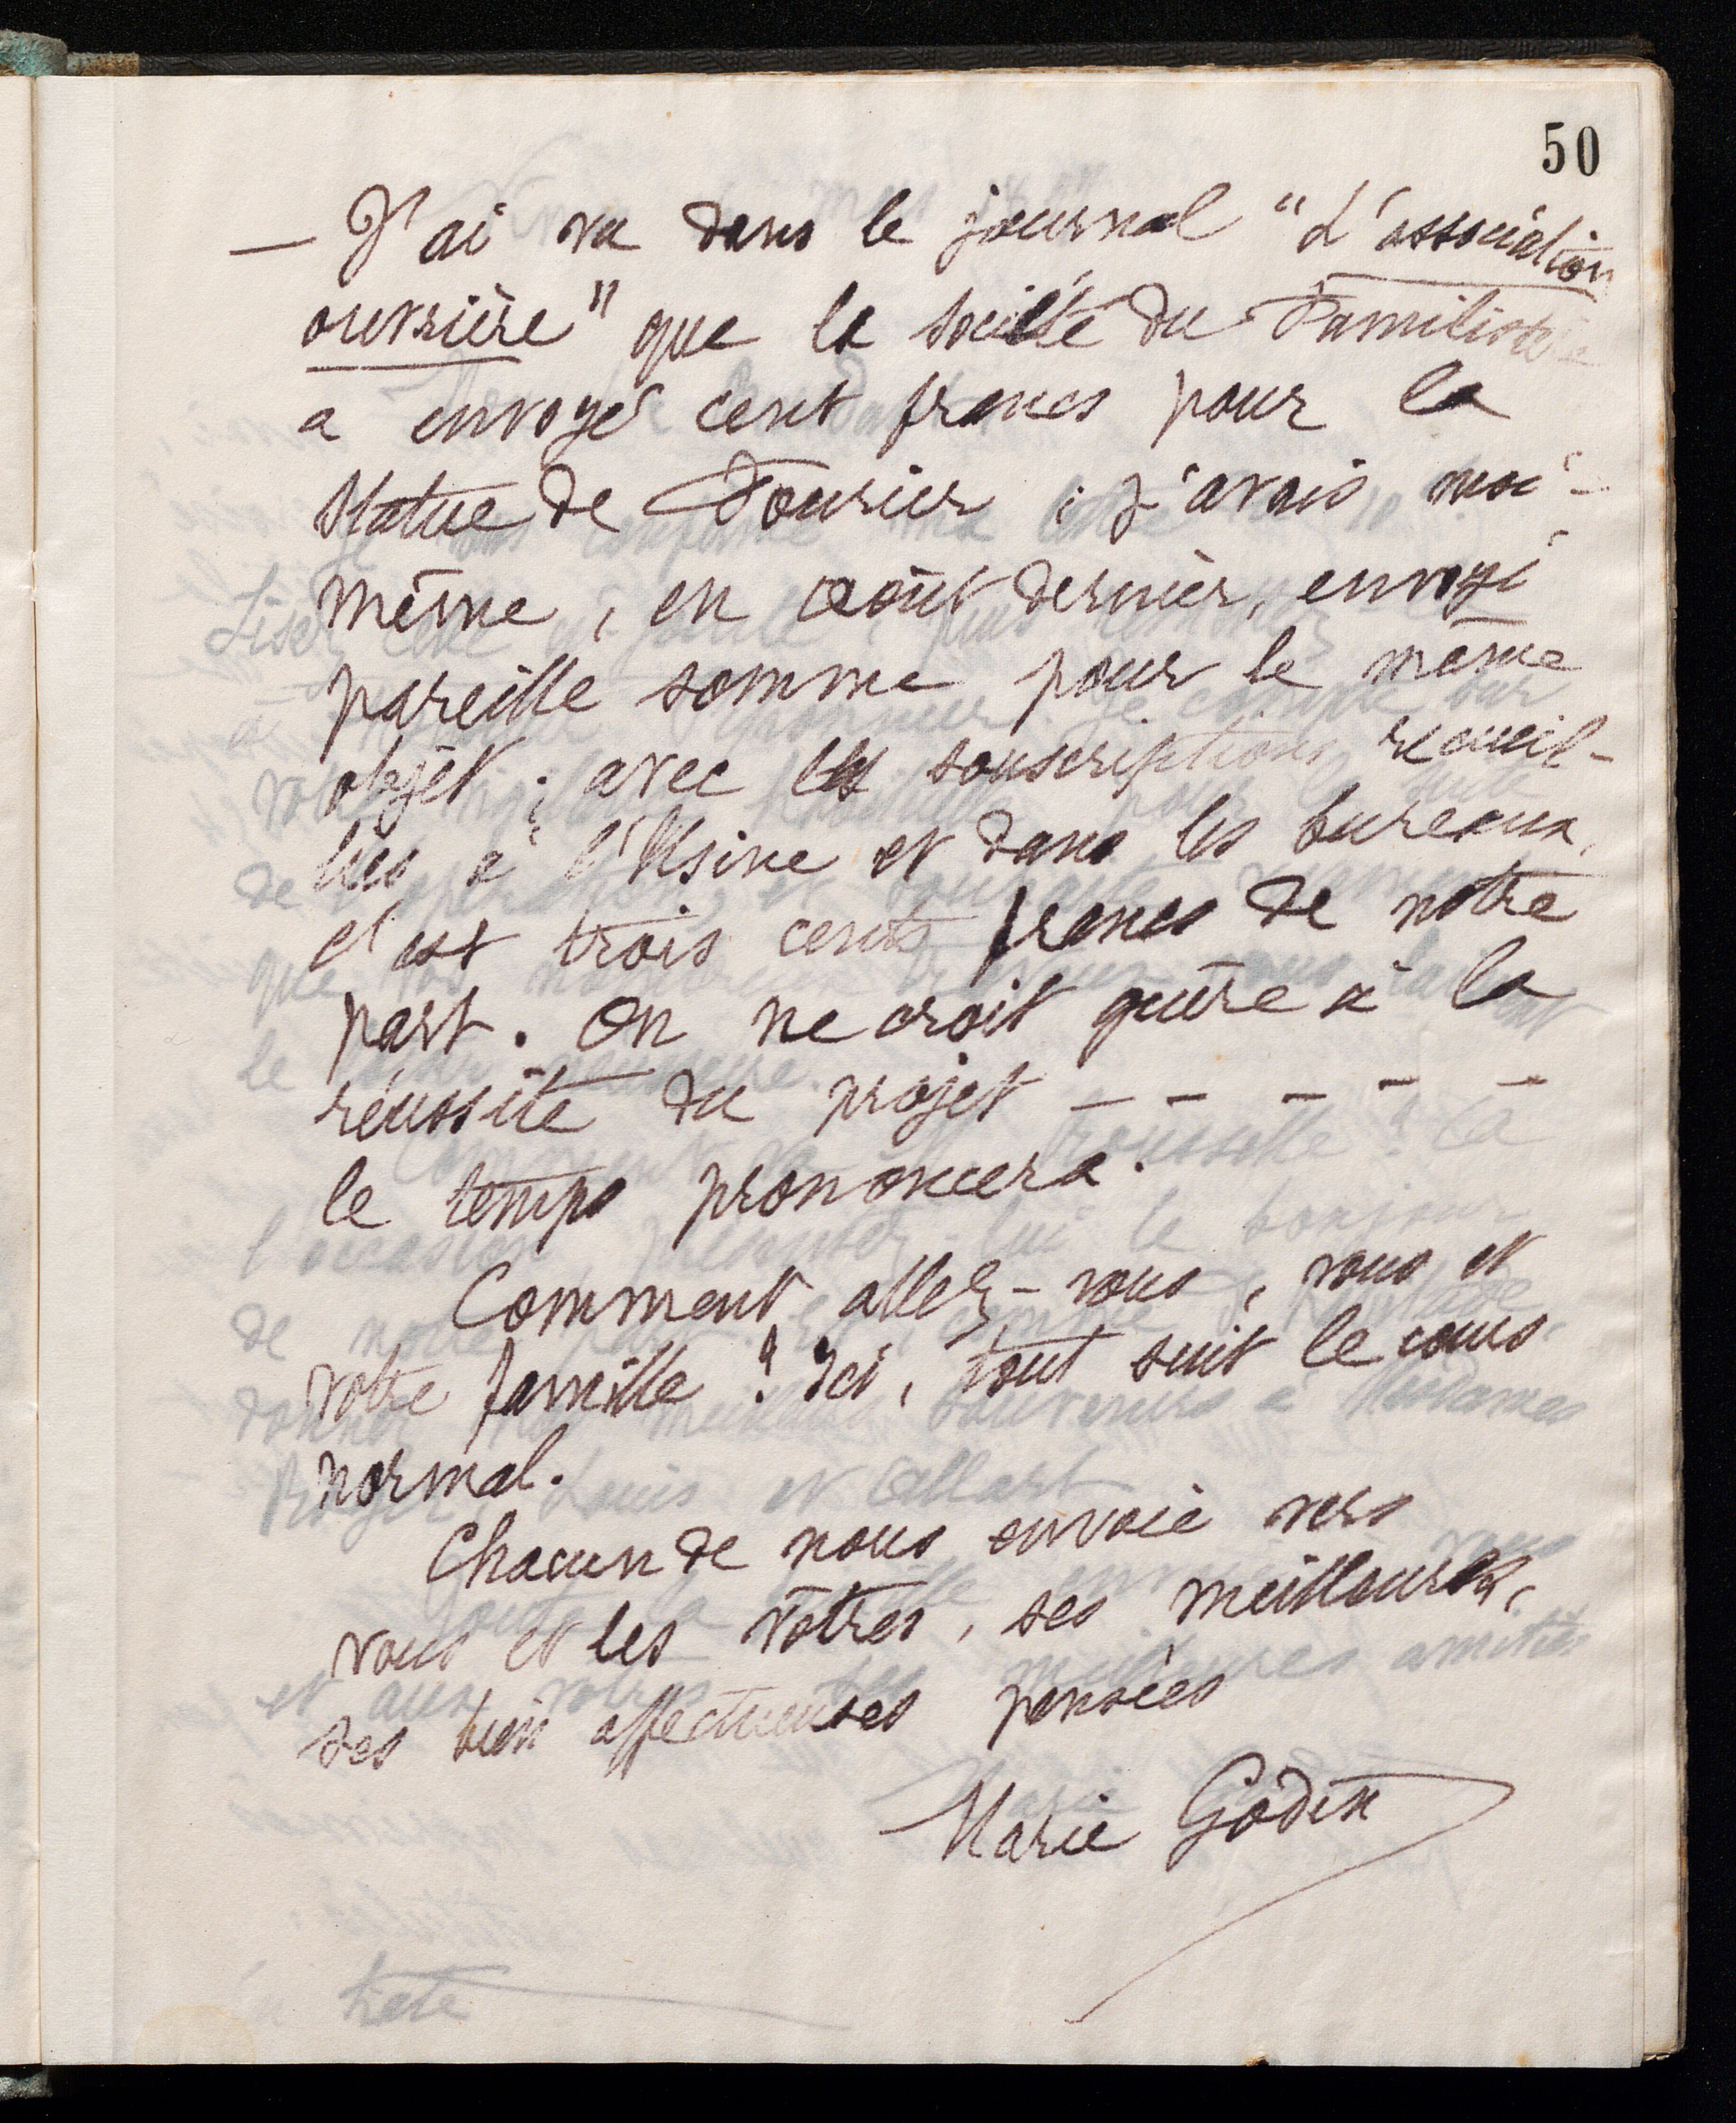 50
— J'ai vu dans le journal "L'association
ouvrière" que la Société du Familistère
a envoyé cent francs pour la
statue de Fourier ; j'avais moi-
même, en août dernier, envoyé
pareille somme pour le même
objet ; avec les souscriptions recueil-
lies à l'Usine et dans les bureaux,
c'est trois cents francs de notre
part. On ne croit guère à la
réussite du projet — — — — —
le temps prononcera.
Comment allez-vous, vous et
votre famille ? Ici, tout suit le cours
normal.
Chacun de nous envoie vers
vous et les vôtres, ses meilleures,
ses bien affectueuses pensées
Marie Godin